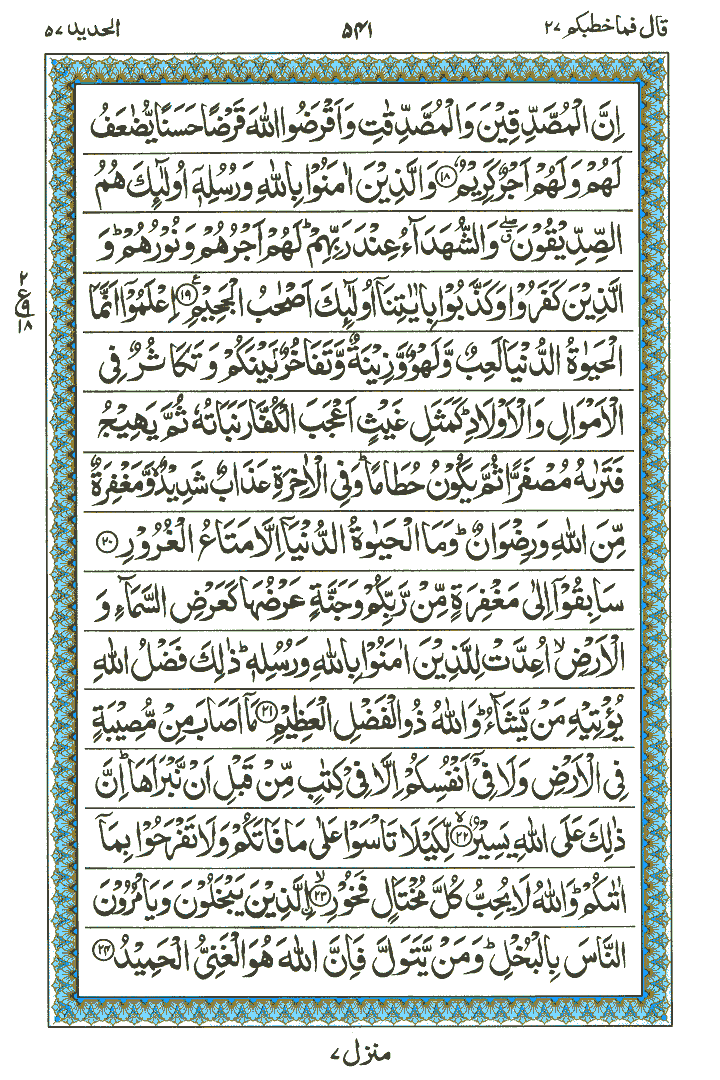 قال فما خطبكم ٢٧ ۵۴۱ الحديد ۵٧
اِنَّ الْمُصَّدِّقِيْنَ وَالْمُصَّدِّقٰتِ وَاَقْرَضُوا اللّٰهَ قَرْضًا حَسَنًا يُّضٰعَفُ
لَهُمْ وَلَهُمْ اَجْرٌ كَرِيْمٌ ⑱ وَالَّذِيْنَ اٰمَنُوْا بِاللّٰهِ وَرُسُلِهٖۤ اُولٰٓئِكَ هُمُ
الصِّدِّيْقُوْنَ ۖۗ وَالشُّهَدَآءُ عِنْدَ رَبِّهِمْ ؕ لَهُمْ اَجْرُهُمْ وَنُوْرُهُمْ ؕ وَ
الَّذِيْنَ كَفَرُوْا وَكَذَّبُوْا بِاٰيٰتِنَاۤ اُولٰٓئِكَ اَصْحٰبُ الْجَحِيْمِ ⑲ اِعْلَمُوْۤا اَنَّمَا
الْحَيٰوةُ الدُّنْيَا لَعِبٌ وَّلَهْوٌ وَّزِيْنَةٌ وَّتَفَاخُرٌۢ بَيْنَكُمْ وَتَكَاثُرٌ فِى
الْاَمْوَالِ وَالْاَوْلَادِ ؕ كَمَثَلِ غَيْثٍ اَعْجَبَ الْكُفَّارَ نَبَاتُهٗ ثُمَّ يَهِيْجُ
فَتَرٰىهُ مُصْفَرًّا ثُمَّ يَكُوْنُ حُطَامًا ؕ وَفِى الْاٰخِرَةِ عَذَابٌ شَدِيْدٌ ۙ وَّمَغْفِرَةٌ
مِّنَ اللّٰهِ وَرِضْوَانٌ ؕ وَمَا الْحَيٰوةُ الدُّنْيَاۤ اِلَّا مَتَاعُ الْغُرُوْرِ ⑳
سَابِقُوْۤا اِلٰى مَغْفِرَةٍ مِّنْ رَّبِّكُمْ وَجَنَّةٍ عَرْضُهَا كَعَرْضِ السَّمَآءِ وَ
الْاَرْضِ ۙ اُعِدَّتْ لِلَّذِيْنَ اٰمَنُوْا بِاللّٰهِ وَرُسُلِهٖ ؕ ذٰلِكَ فَضْلُ اللّٰهِ
يُؤْتِيْهِ مَنْ يَّشَآءُ ؕ وَاللّٰهُ ذُو الْفَضْلِ الْعَظِيْمِ ㉑ مَاۤ اَصَابَ مِنْ مُّصِيْبَةٍ
فِى الْاَرْضِ وَلَا فِىْۤ اَنْفُسِكُمْ اِلَّا فِىْ كِتٰبٍ مِّنْ قَبْلِ اَنْ نَّبْرَاَهَا ؕ اِنَّ
ذٰلِكَ عَلَى اللّٰهِ يَسِيْرٌ ㉒ لِّكَيْلَا تَاْسَوْا عَلٰى مَا فَاتَكُمْ وَلَا تَفْرَحُوْا بِمَاۤ
اٰتٰىكُمْ ؕ وَاللّٰهُ لَا يُحِبُّ كُلَّ مُخْتَالٍ فَخُوْرِ ۣ ㉓ الَّذِيْنَ يَبْخَلُوْنَ وَيَاْمُرُوْنَ
النَّاسَ بِالْبُخْلِ ؕ وَمَنْ يَّتَوَلَّ فَاِنَّ اللّٰهَ هُوَ الْغَنِىُّ الْحَمِيْدُ ㉔
٢
ع
٩
١٨
منزل ٧